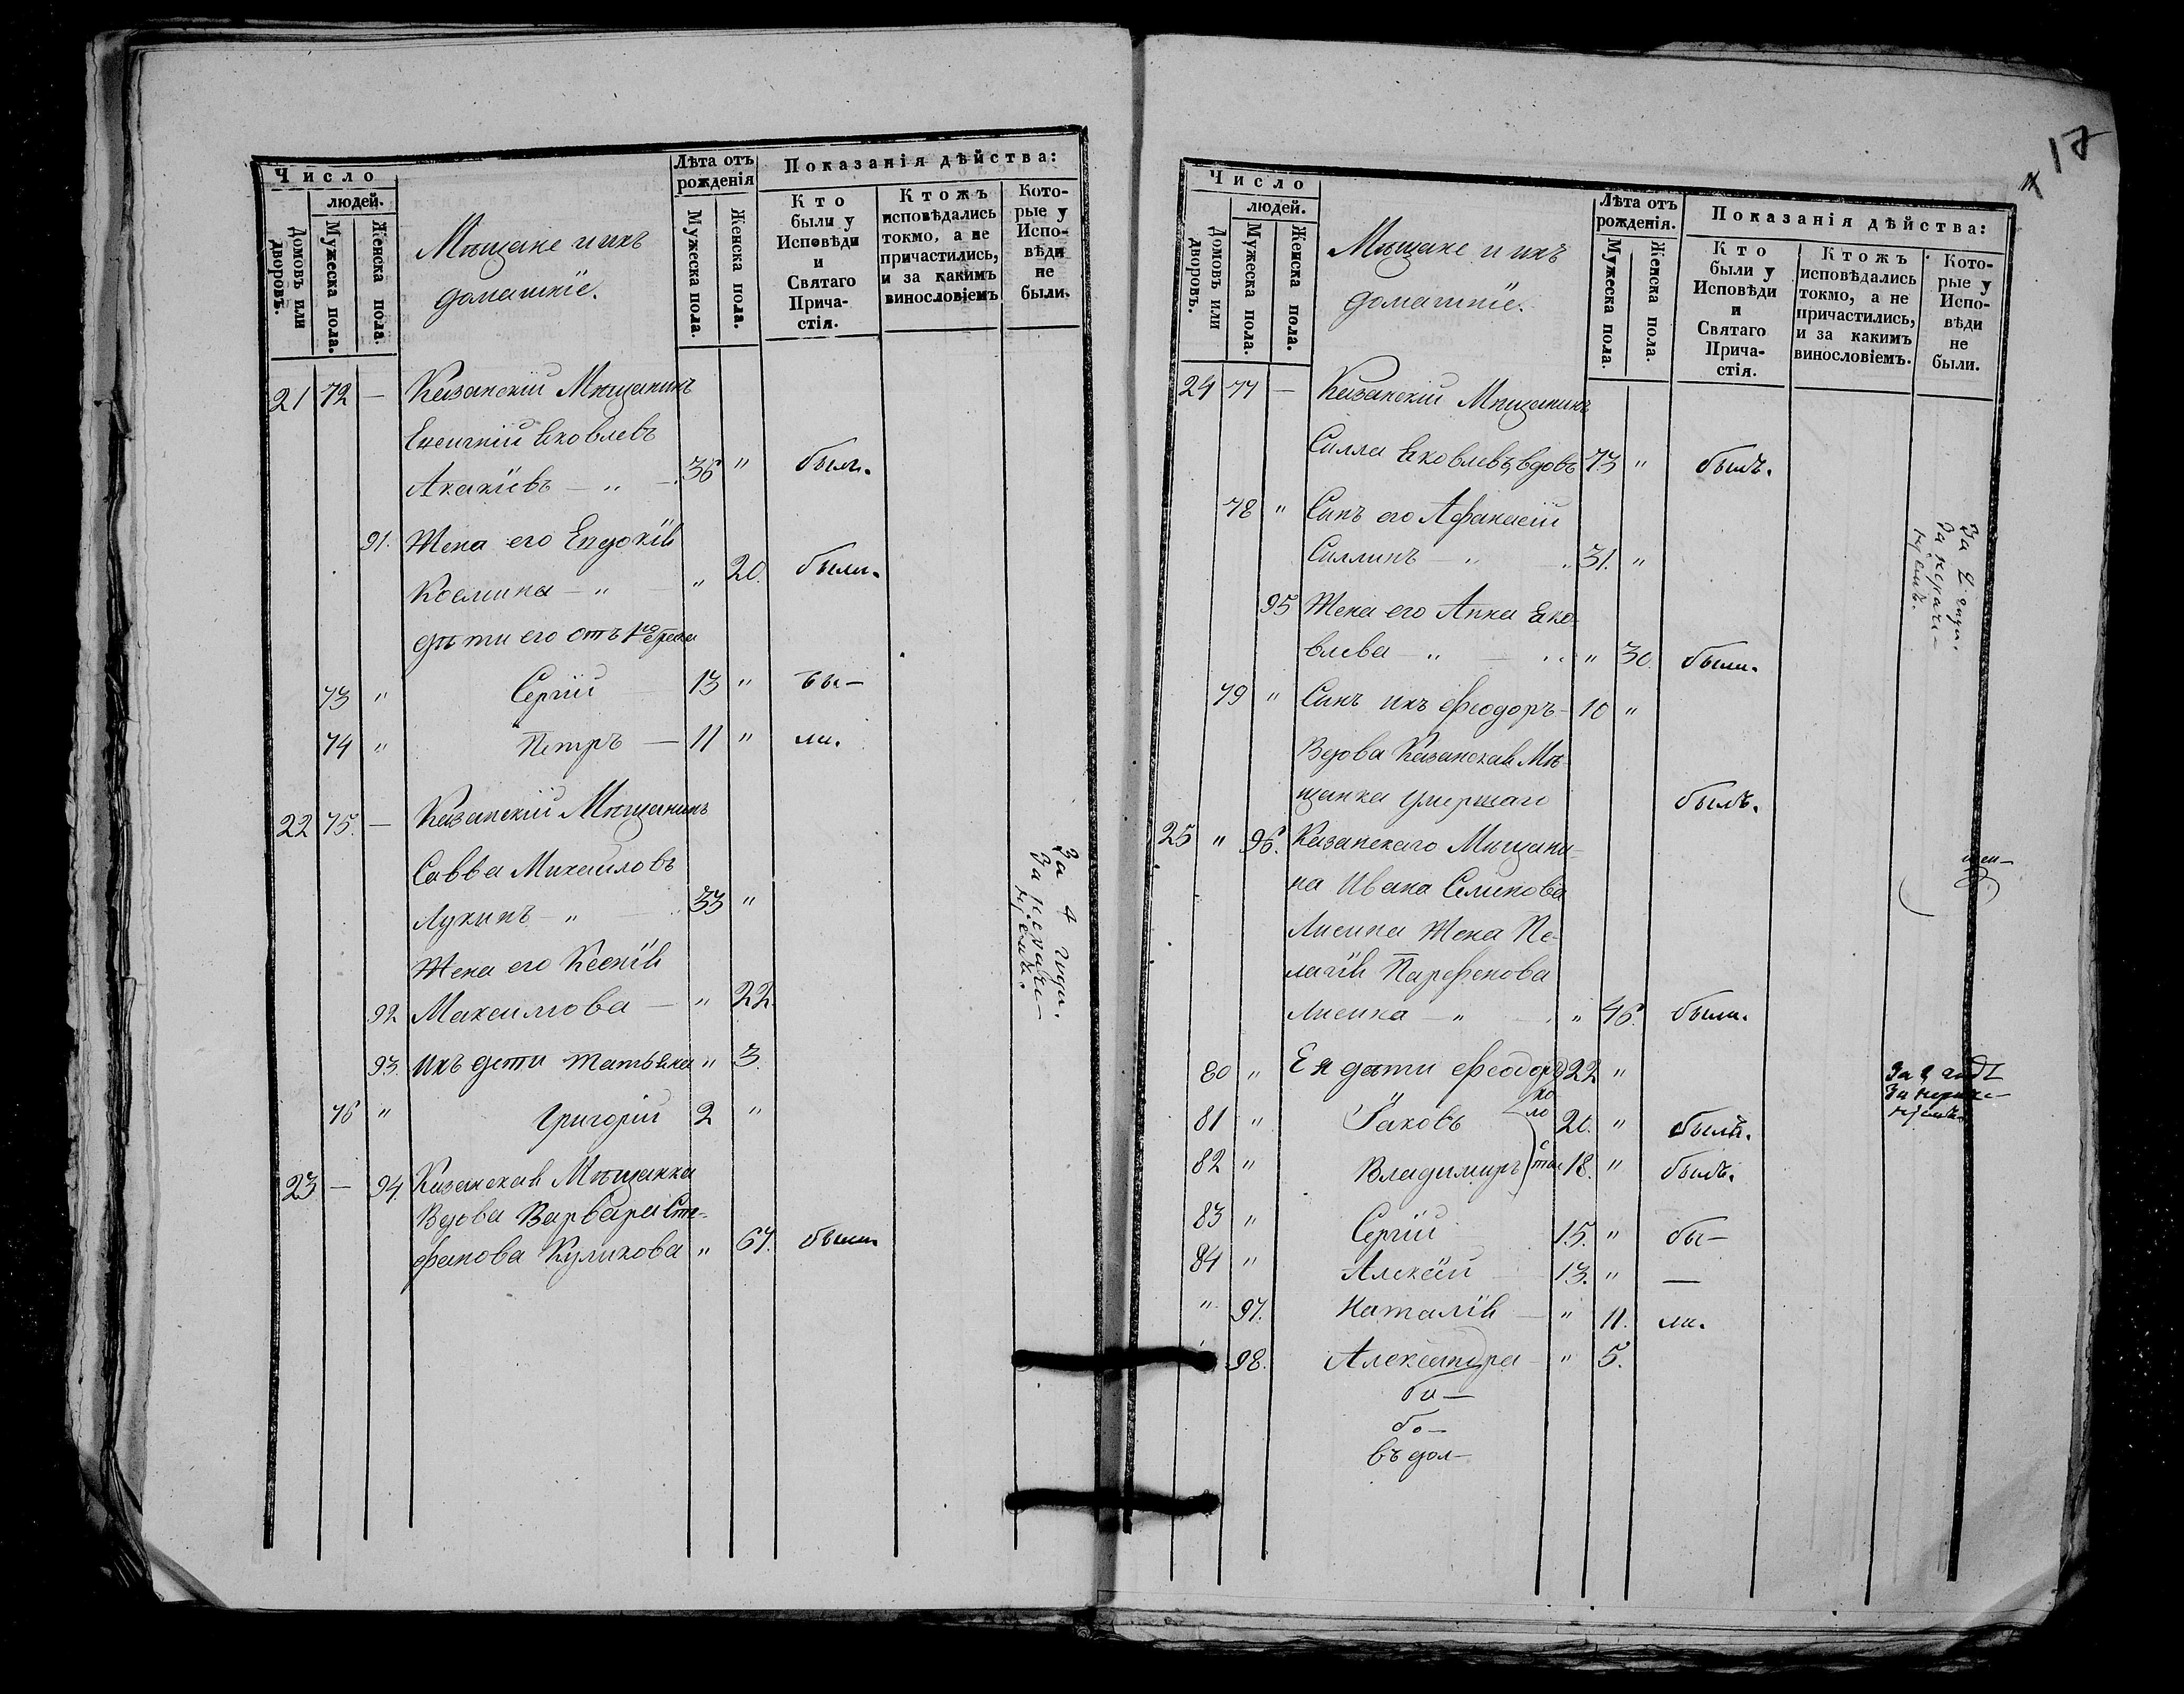 Число
людей.
Домовъ или дворовъ.
Мужеска пола.
Женска пола.
Мѣщане и ихъ
домашніе.
Лѣта отъ
рожденія
Мужеска пола.
Женска пола.
Показанія дѣйства:
Кто
были у
Исповѣди
и
Святаго
Прича-
стія.
Ктожъ
исповѣдались
токмо, а не
причастились,
и за какимъ
винословіемъ
Кото-
рые у
Испо-
вѣди
не
были.
21 72 — Казанскій Мѣщанинъ
Евсигній Яковлевъ
Акакіевъ — " — 36 " былъ.
91. Жена его Евдокія
Космина — " — " 20. была.
дѣти его отъ 1го брака
73 " Сергій 13 " бы—
74 " Петръ — 11 " ли.
22 75. — Казанскій Мѣщанинъ
Савва Михайловъ
Лукинъ — " 33 "
Жена его Ксенія
92 Максимова — " 22.
93. Ихъ дети Татьяна " 3.
76 " Григорій 2 "
За 4 года.
За нерачи-
тѣемъ.
23 — 94. Казанская Мѣщанка
Вдова Варвара Сте-
фанова Куликова " 67. была.
17
Число
людей.
Домовъ или дворовъ.
Мужеска пола.
Женска пола.
Мѣщане и ихъ
домашніе.
Лѣта отъ
рожденія.
Мужеска пола.
Женска пола.
Показанія дѣйства:
Кто
были у
Исповѣди
и
Святаго
Прича-
стія.
Ктожъ
исповѣдались
токмо, а не
причастились,
и за какимъ
винословіемъ.
Кото-
рые у
Испо-
вѣди
не
были.
24 77 — Казанскій Мѣщанинъ
Силла Яковлевъ, вдовъ 73 " былъ.
78 " Сынъ его Афанасій
Силлинъ — " " 31. "
За 2 года.
За нерачи-
95 Жена его Анна Яко-
влева — " — " 30. была.
79 " Сынъ ихъ Феодоръ — 10 "
былъ.
Вдова Казанская Мѣ-
щанка умершаго
25 " 96. Казанскаго Мѣщани-
на Ивана Семенова
Лисина Жена Пе-
лагія Парфенова
Лисина — " " 46. была.
80 " Ея дѣти Феодоръ 22 "
За 2 года
81 " Іаковъ 20. " былъ.
82 " Владимиръ 18. " былъ.
83 " Сергій 15. " бы—
84 " Алексѣй 13. " —
" 97. Наталія — " 11. ли.
98. Александра — " 5.
бо—
въ дол—